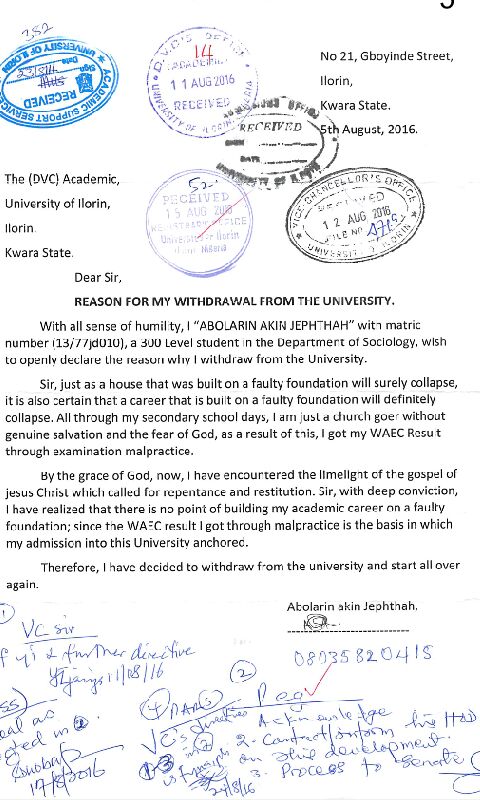 352
ACADEMIC SUPPORT SERVICES
RECEIVED
Date 23/8/16
Sign
UNIVERSITY OF ILORIN
D.V.C'S OFFICE
14
(ACADEMIC)
11 AUG 2016
RECEIVED
UNIVERSITY OF ILORIN, NIGERIA
RECEIVED
DATE
No 21, Gboyinde Street,
Ilorin,
Kwara State.
5th August, 2016.
52
RECEIVED
15 AUG 2016
REGISTRAR'S OFFICE
University of Ilorin
Ilorin Nigeria
VICE CHANCELLOR'S OFFICE
RECEIVED
12 AUG 2016
FILE NO
UNIVERSITY OF ILORIN
The (DVC) Academic,
University of Ilorin,
Ilorin
Kwara State.
Dear Sir,
REASON FOR MY WITHDRAWAL FROM THE UNIVERSITY.
With all sense of humility, I “ABOLARIN AKIN JEPHTHAH” with matric
number (13/77jd010), a 300 Level student in the Department of Sociology, wish
to openly declare the reason why I withdraw from the University.
Sir, just as a house that was built on a faulty foundation will surely collapse,
it is also certain that a career that is built on a faulty foundation will definitely
collapse. All through my secondary school days, I am just a church goer without
genuine salvation and the fear of God, as a result of this, I got my WAEC Result
through examination malpractice.
By the grace of God, now, I have encountered the limelight of the gospel of
jesus Christ which called for repentance and restitution. Sir, with deep conviction,
I have realized that there is no point of building my academic career on a faulty
foundation; since the WAEC result I got through malpractice is the basis in which
my admission into this University anchored.
Therefore, I have decided to withdraw from the university and start all over
again.
Abolarin akin Jephthah,
08035820415
1
VC Sir
further directive
11/08/16
2
Reg
VC's directives
Acknowledge
2- Contact/inform the HOD
on this development.
3- Process to Senate
24/8/16
17/8/2016